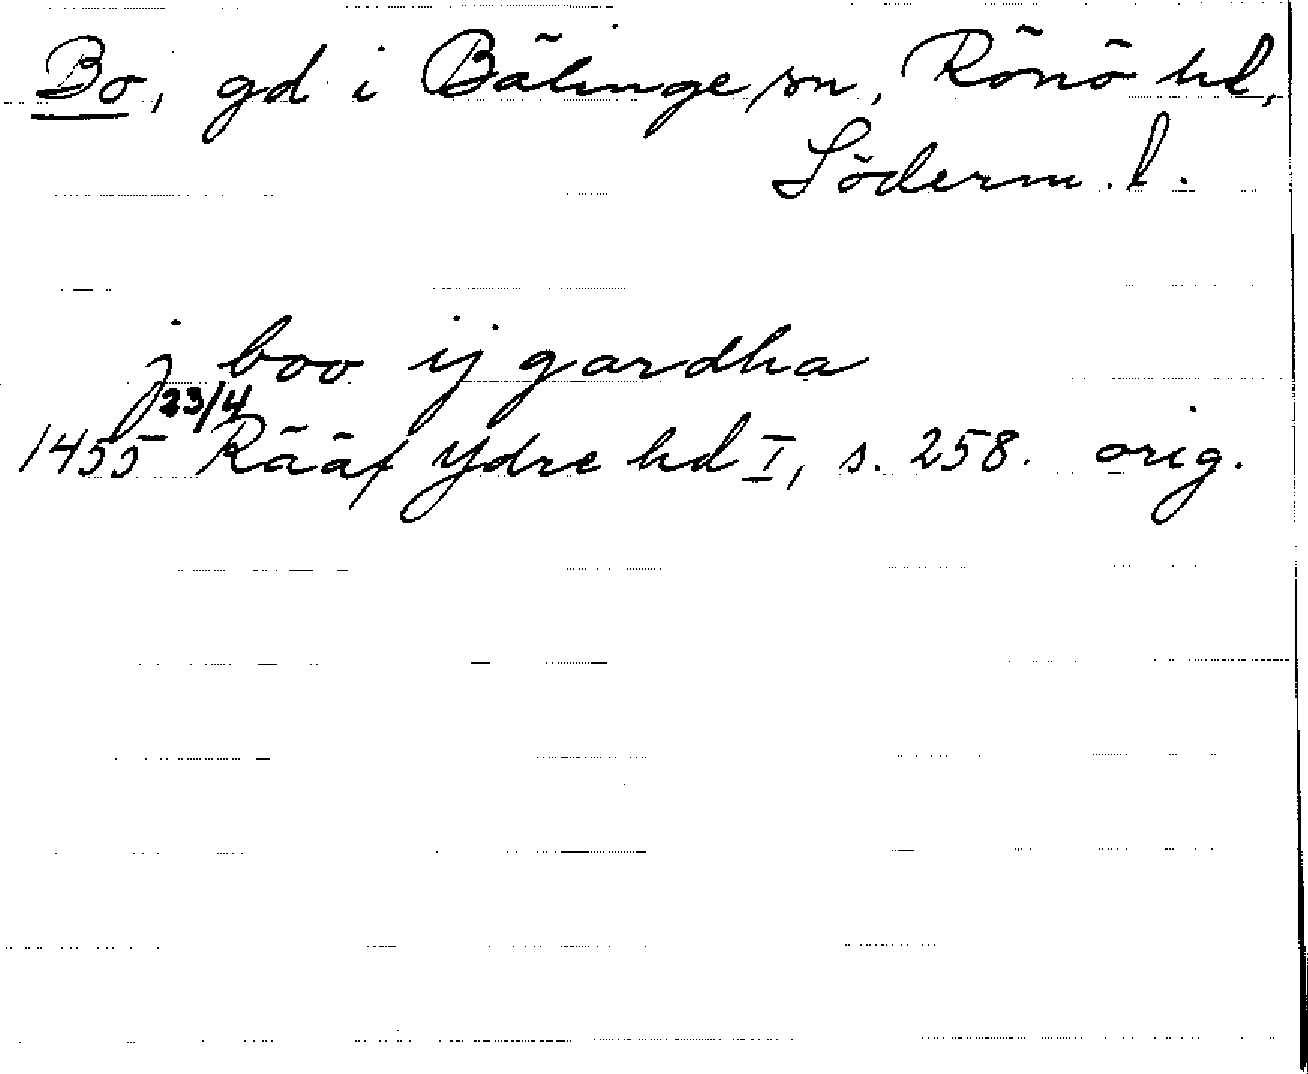 Bo, gd i Bälinge sn, Rönö hd,
Söderm. l.
j boo ij gardha
23/4
1455 Rääf Ydre hd I, s. 258. orig.